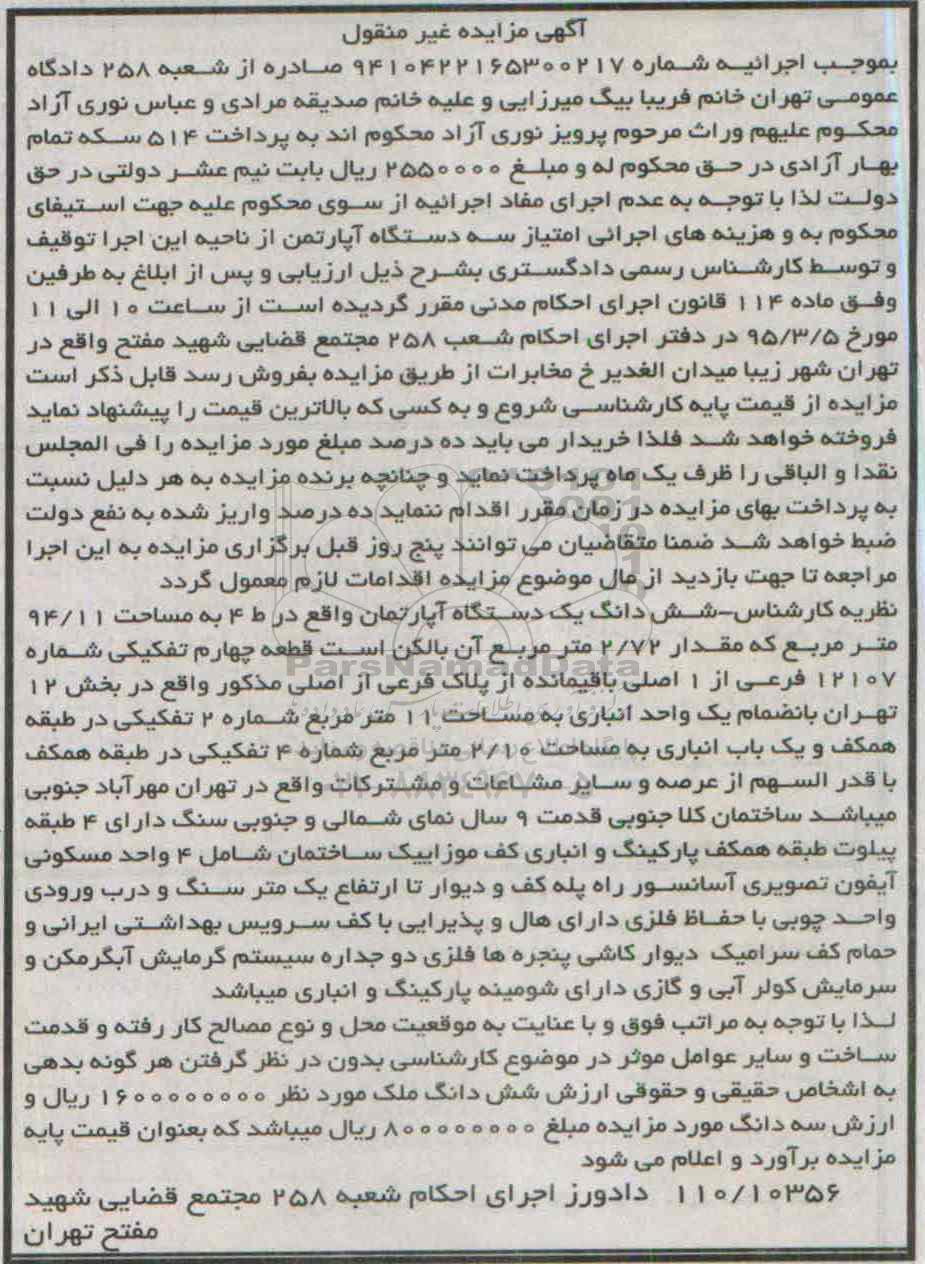 آگهی مزایده غیر منقول
بموجب اجرائیه شماره ۹۴۱۰۴۲۲۱۶۵۳۰۰۲۱۷ صادره از شعبه ۲۵۸ دادگاه
عمومی تهران خانم فریبا بیگ میرزایی و علیه خانم صدیقه مرادی و عباس نوری آزاد
محکوم علیهم وراث مرحوم پرویز نوری آزاد محکوم اند به پرداخت ۵۱۴ سکه تمام
بهار آزادی در حق محکوم له و مبلغ ۲۵۵۰۰۰۰ ریال بابت نیم عشر دولتی در حق
دولت لذا با توجه به عدم اجرای مفاد اجرائیه از سوی محکوم علیه جهت استیفای
محکوم به و هزینه های اجرائی امتیاز سه دستگاه آپارتمن از ناحیه این اجرا توقیف
و توسط کارشناس رسمی دادگستری بشرح ذیل ارزیابی و پس از ابلاغ به طرفین
وفق ماده ۱۱۴ قانون اجرای احکام مدنی مقرر گردیده است از ساعت ۱۰ الی ۱۱
مورخ ۹۵/۳/۵ در دفتر اجرای احکام شعب ۲۵۸ مجتمع قضایی شهید مفتح واقع در
تهران شهر زیبا میدان الغدیر خ مخابرات از طریق مزایده بفروش رسد قابل ذکر است
مزایده از قیمت پایه کارشناسی شروع و به کسی که بالاترین قیمت را پیشنهاد نماید
فروخته خواهد شد فلذا خریدار می باید ده درصد مبلغ مورد مزایده را فی المجلس
نقدا و الباقی را ظرف یک ماه پرداخت نماید و چنانچه برنده مزایده به هر دلیل نسبت
به پرداخت بهای مزایده در زمان مقرر اقدام ننماید ده درصد واریز شده به نفع دولت
ضبط خواهد شد ضمنا متقاضیان می توانند پنج روز قبل برگزاری مزایده به این اجرا
مراجعه تا جهت بازدید از مال موضوع مزایده اقدامات لازم معمول گردد
نظریه کارشناس-شش دانگ یک دستگاه آپارتمان واقع در ط ۴ به مساحت ۹۴/۱۱
متر مربع که مقدار ۲/۷۲ متر مربع آن بالکن است قطعه چهارم تفکیکی شماره
ParsNamadData
۱۲۱۰۷ فرعی از ۱ اصلی باقیمانده از پلاک فرعی از اصلی مذکور واقع در بخش ۱۲
تهران بانضمام یک واحد انباری به مساحت ۱۱ متر مربع شماره ۲ تفکیکی در طبقه
همکف و یک باب انباری به مساحت ۲/۱۰ متر مربع شماره ۴ تفکیکی در طبقه همکف
با قدر السهم از عرصه و سایر مشاعات و مشترکات واقع در تهران مهرآباد جنوبی
میباشد ساختمان کلا جنوبی قدمت ۹ سال نمای شمالی و جنوبی سنگ دارای ۴ طبقه
پیلوت طبقه همکف پارکینگ و انباری کف موزاییک ساختمان شامل ۴ واحد مسکونی
آیفون تصویری آسانسور راه پله کف و دیوار تا ارتفاع یک متر سنگ و درب ورودی
واحد چوبی با حفاظ فلزی دارای هال و پذیرایی با کف سرویس بهداشتی ایرانی و
حمام کف سرامیک دیوار کاشی پنجره ها فلزی دو جداره سیستم گرمایش آبگرمکن و
سرمایش کولر آبی و گازی دارای شومینه پارکینگ و انباری میباشد
لذا با توجه به مراتب فوق و با عنایت به موقعیت محل و نوع مصالح کار رفته و قدمت
ساخت و سایر عوامل موثر در موضوع کارشناسی بدون در نظر گرفتن هر گونه بدهی
به اشخاص حقیقی و حقوقی ارزش شش دانگ ملک مورد نظر ۱۶۰۰۰۰۰۰۰۰ ریال و
ارزش سه دانگ مورد مزایده مبلغ ۸۰۰۰۰۰۰۰۰ ریال میباشد که بعنوان قیمت پایه
مزایده برآورد و اعلام می شود
۱۱۰/۱۰۳۵۶ دادورز اجرای احکام شعبه ۲۵۸ مجتمع قضایی شهید
مفتح تهران